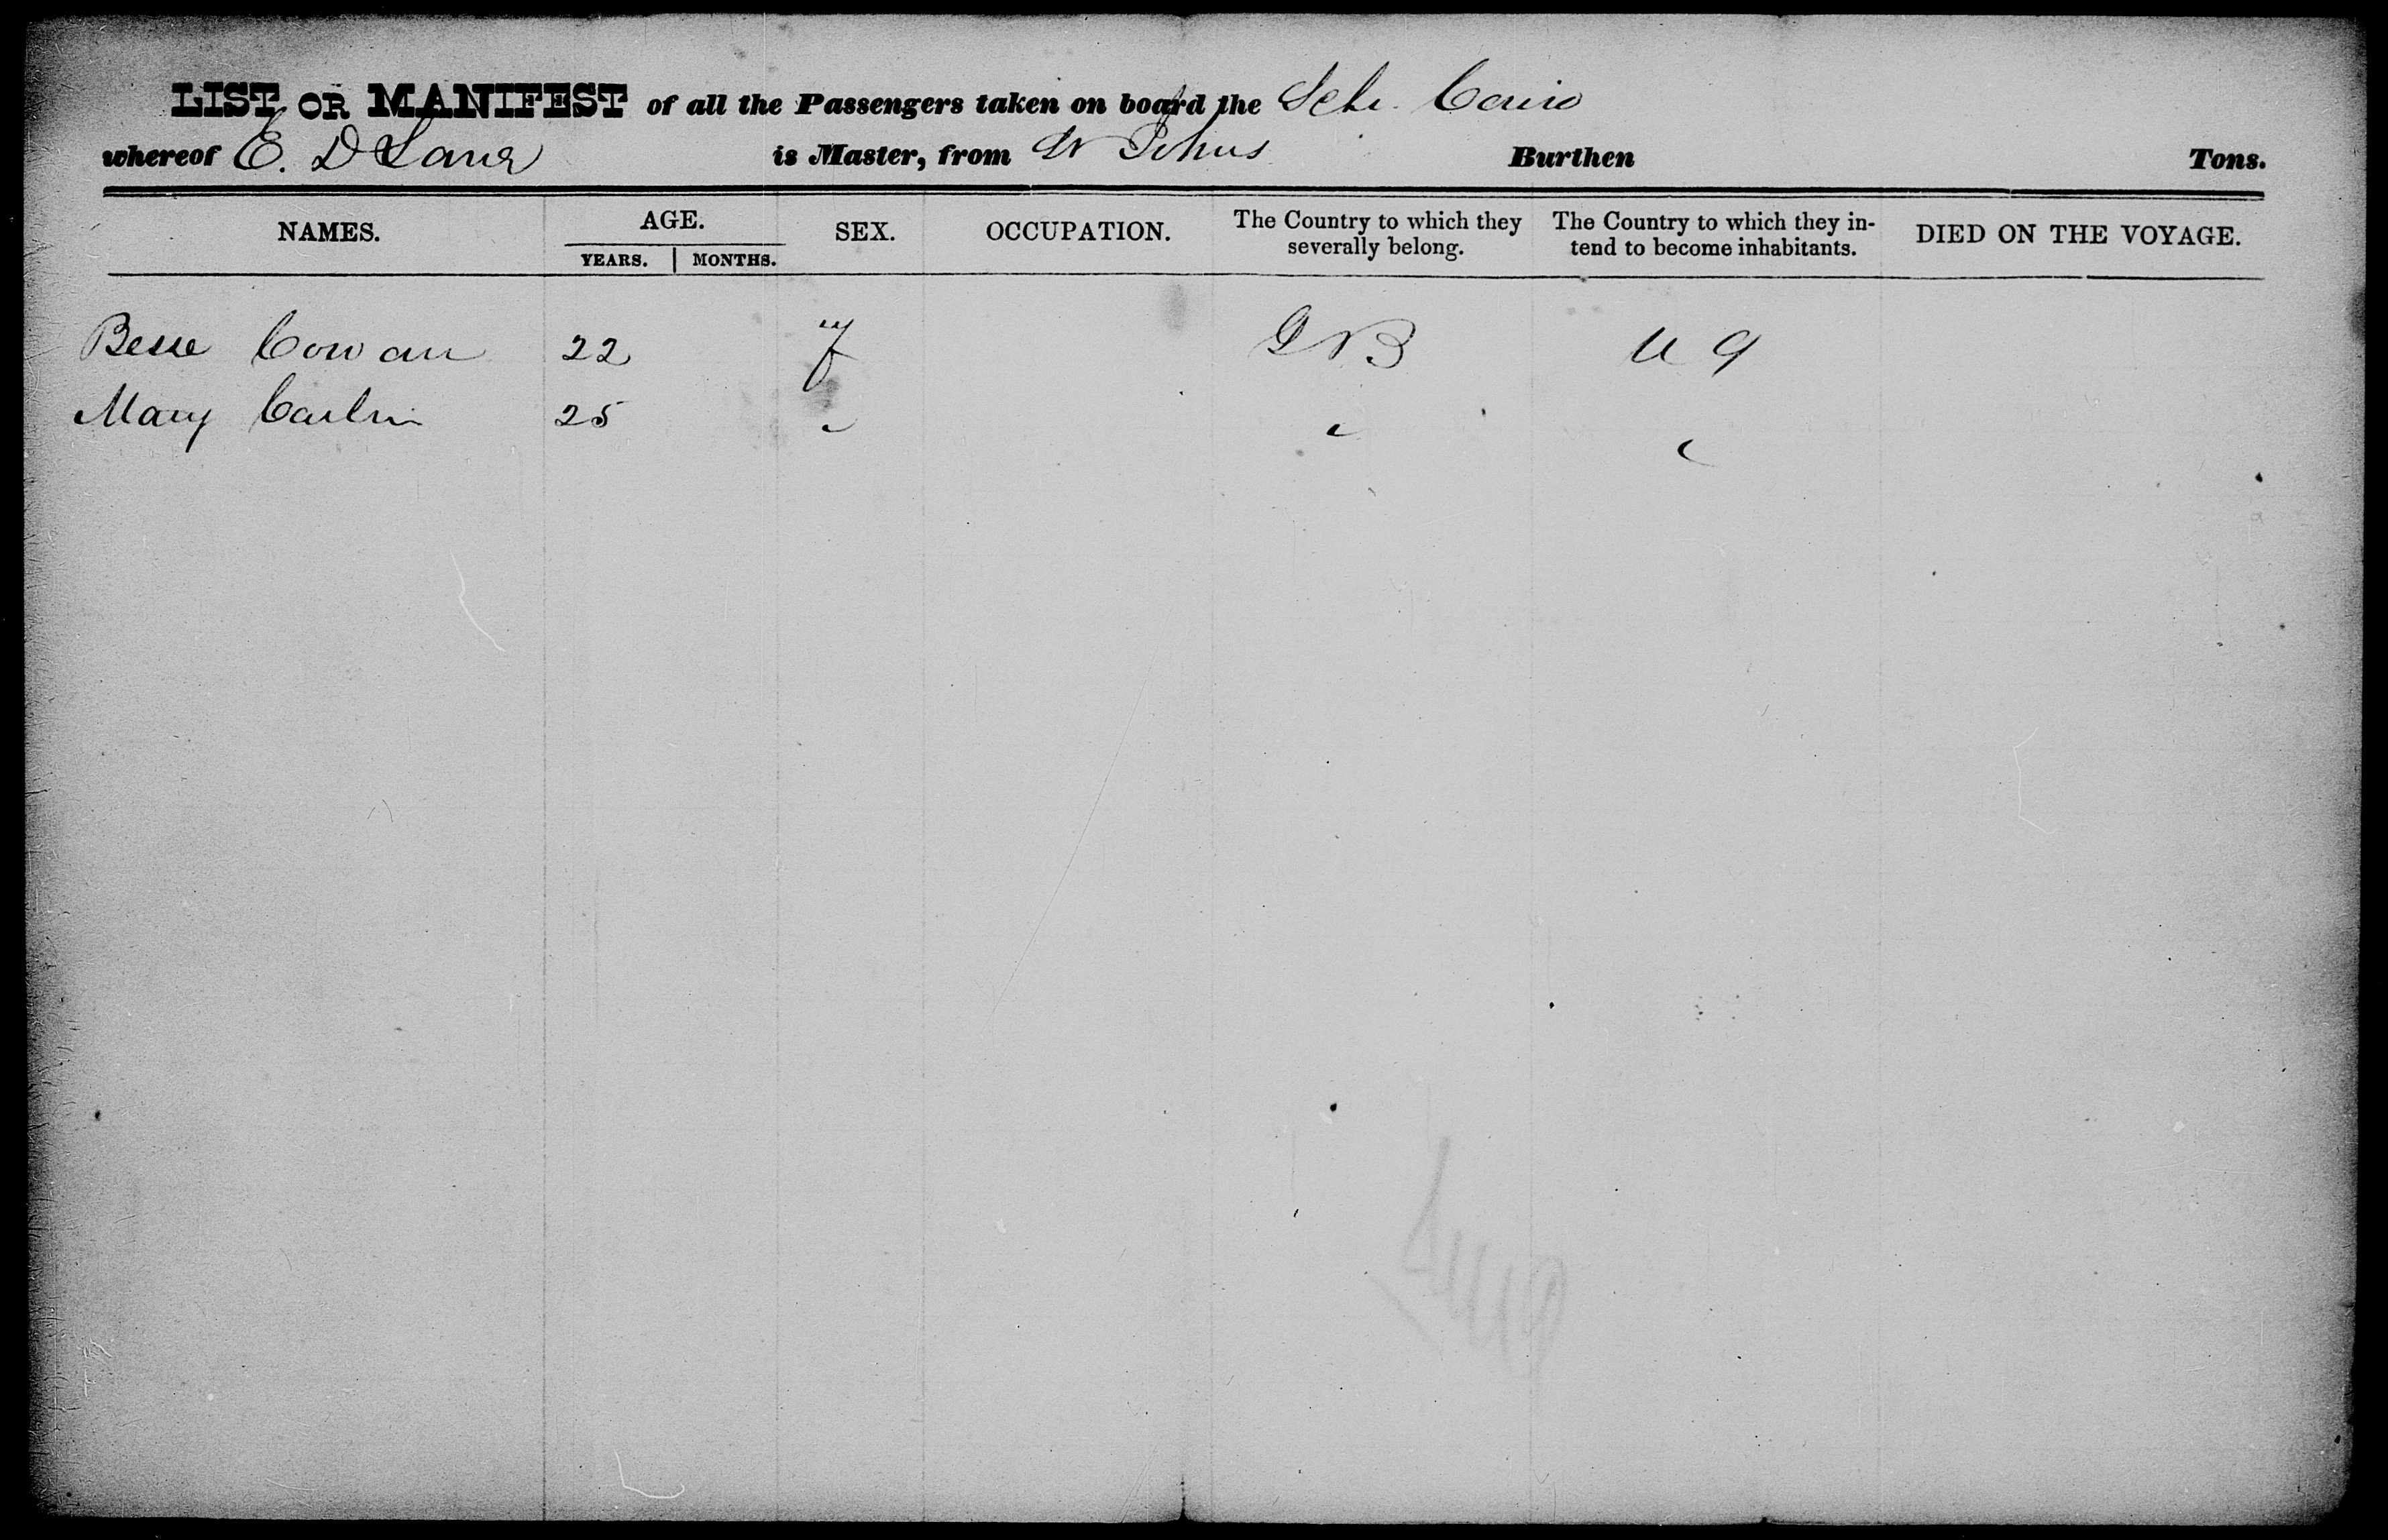 LIST OR MANIFEST of all the Passengers taken on board the Sch. Cairo
whereof E. D Lane is Master, from St Johns Burthen Tons.
NAMES. AGE. SEX. OCCUPATION. The Country to which they severally belong. The Country to which they in-tend to become inhabitants. DIED ON THE VOYAGE.
YEARS. MONTHS.
Besse Cowan 22 f N B U S
Mary Carlin 25 " " "